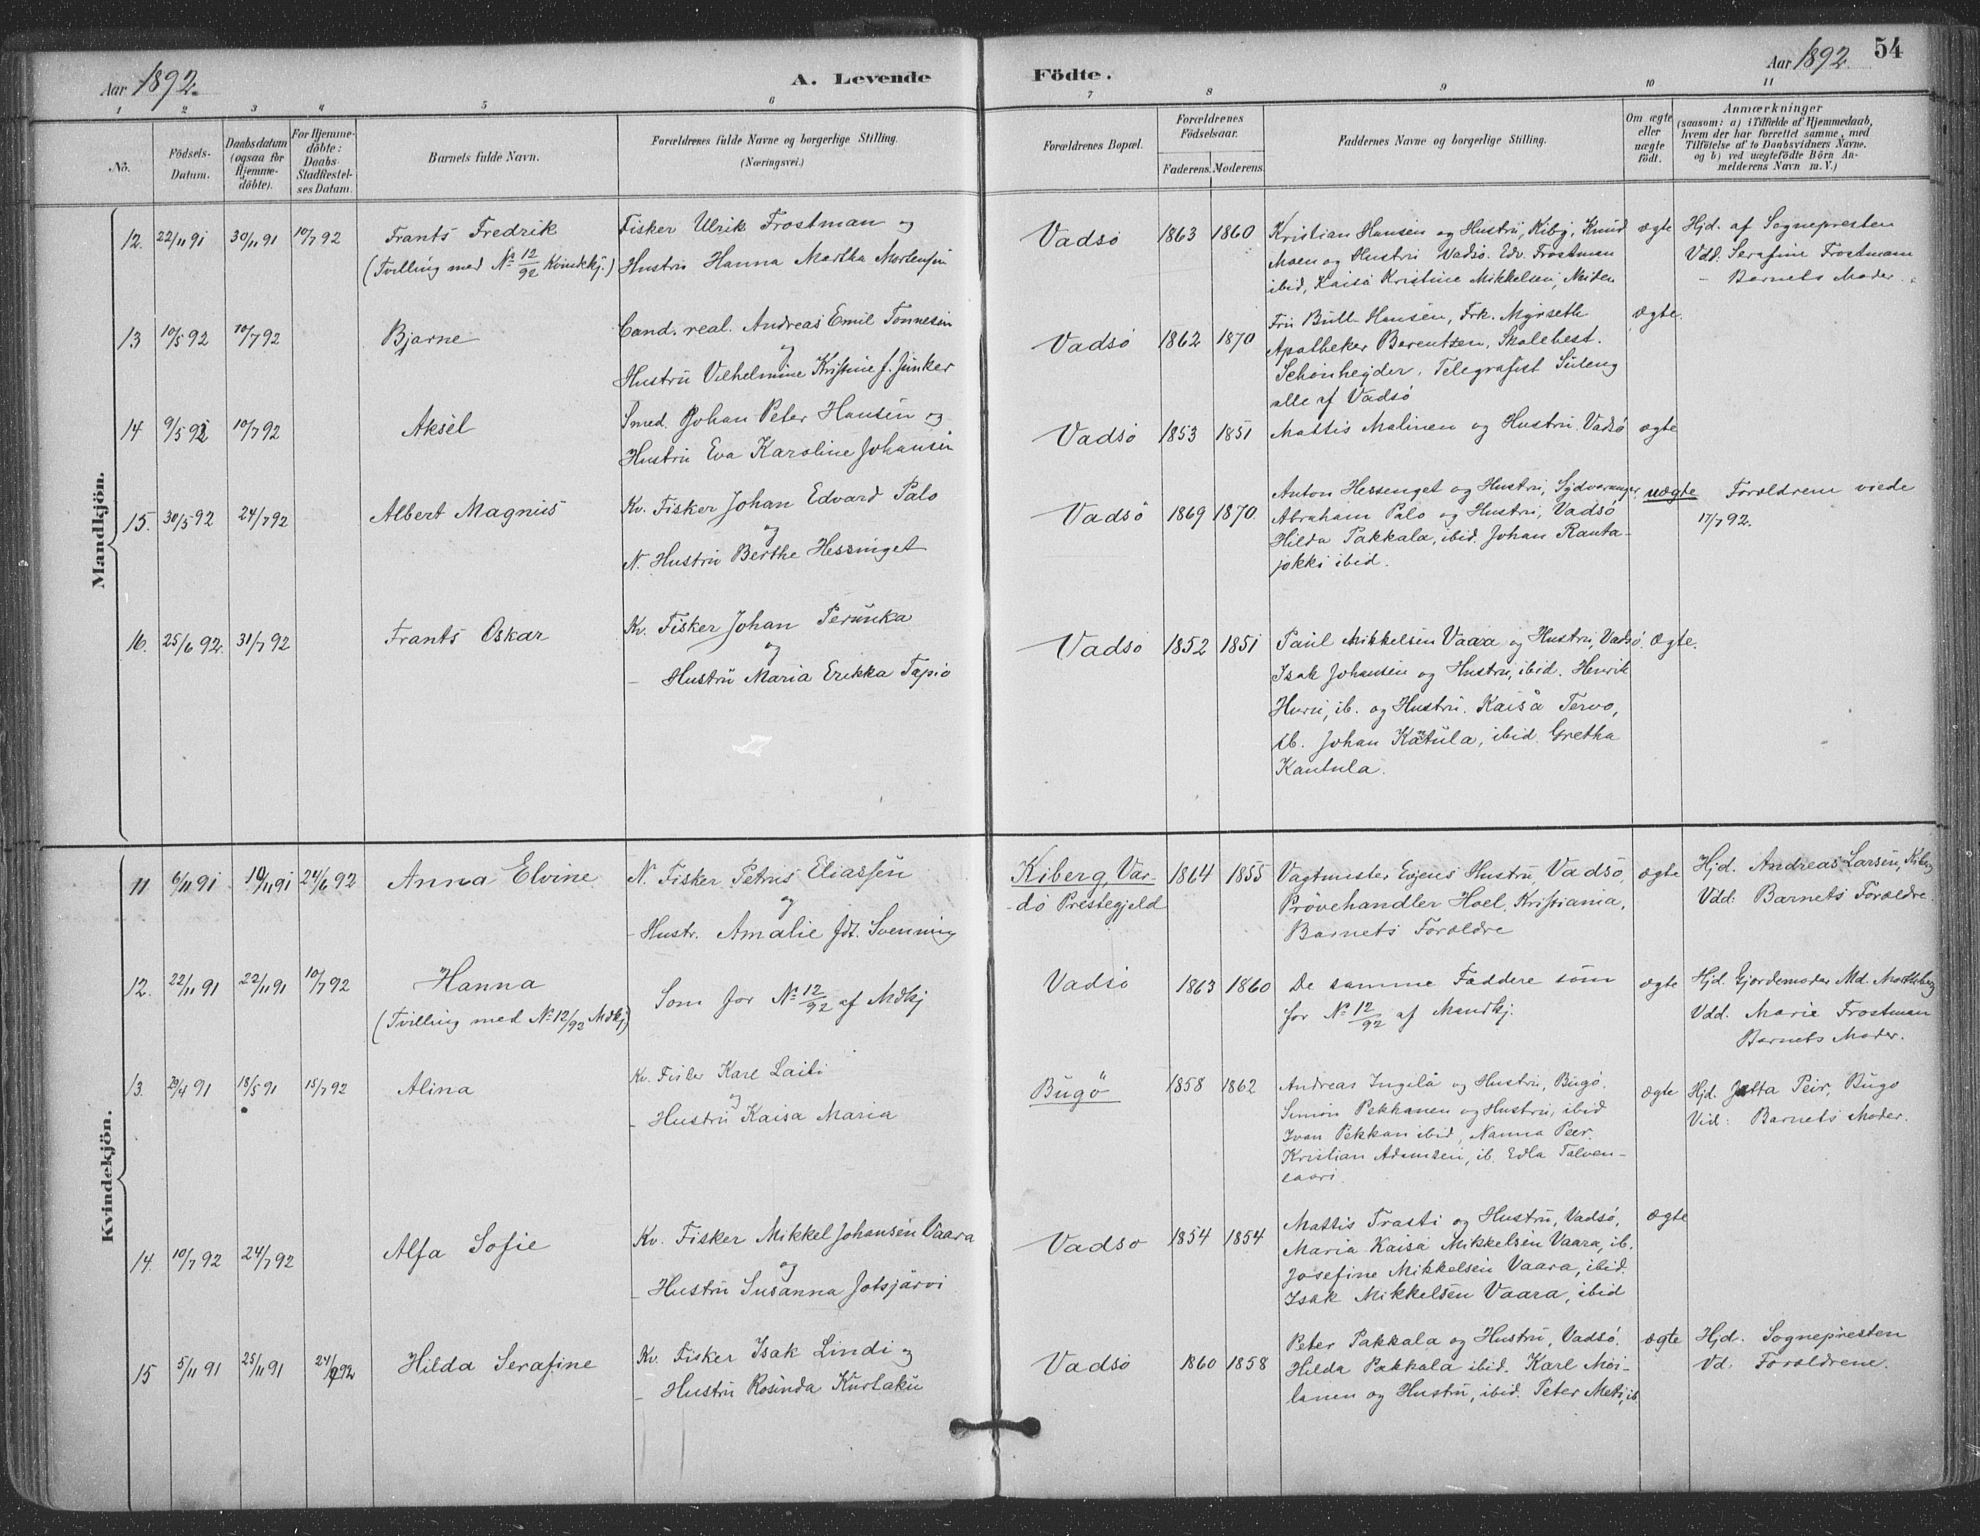 Aar 1892.
A. Levende Födte.
Aar 1892. 54
1 2 3 4 5 6 7 8 9 10 11
No.
Fødsels-Datum.
Daabsdatum (ogsaa for Hjemme-døbte).
For Hjemme-døbte: Daabs-Stadfæstel-ses Datum.
Barnets fulde Navn.
Forældrenes fulde Navne og borgerlige Stilling.
(Næringsvei.)
Forældrenes Bopæl.
Forældrenes Fødselsaar.
Faderens. Moderens.
Faddernes Navne og borgerlige Stilling.
Om ægte eller uægte født.
Anmærkninger
(saasom: a) i Tilfælde af Hjemmedaab,
hvem der har forrettet samme, med
Tilføielse af to Daabsvidners Navne.
og b) ved uægtefødte Börn An-
melderens Navn m. V.)
Mandkjön.
12. 22/11 91 30/11 91 10/7 92 Frants Fredrik
(Tvilling med No 12/92 Kvindekj.)
Fisker Ulrik Frostman og
Hustru Hanna Martha Mortensen
Vadsö 1863 1860
Kristian Hansen og Hustru, Kibg, Knud
Moen og Hustru Vadsö. Edv. Frostman
ibid, Kaisa Kristine Mikkelsen,
ægte
Hjd. af Sognepresten
Vdd. Serafine Frostmann
- Barnets Moder.
13 10/5 92 10/7 92 Bjarne
Cand. real. Andreas Emil Tønnesen
og
Hustru Vilhelmine Kristine f. Junker
Vadsö 1862 1870
Fru Bull-Hansen, Frk. Myrseth
Apotheker Barentzen, Skolebest.
Schønheyder, Telegrafist
alle af Vadsö
ægte.
14 9/5 92 10/7 92 Aksel
Smed. Johan Peter Hansen og
Hustru Eva Karoline Johansen
Vadsö 1853 1851
Mattis Malinen og Hustru, Vadsö
ægte
15. 30/5 92 24/7 92 Albert Magnus
Kv. Fisker Johan Edvard Palo
og
N. Hustru Berthe Hessinget
Vadsö 1869 1870.
Anton Hessenget og Hustru, Sydvaranger
Abraham Palo og Hustru, Vadsö
Hilda Pakkala, ibid. Johan Ranta-
jokki ibid.
uægte
Forældrene viede
17/7 92.
16. 25/6 92. 31/7 92 Frants Oskar
Kv. Fisker Johan Perunka
og
- Hustru Maria Erikka Tapio
Vadsö 1852 1851
Paul Mikkelsen Vaara og Hustru, Vadsö.
Isak Johansen og Hustru, ibid. Henrik
Huru, ib. og Hustru. Kaisa Tervo,
ib. Johan Katula, ibid. Gretha
Kantula.
Ægte.
Kvindekjön.
11 6/11 91 10/11 91 24/6 92 Anna Elvine
N. Fisker Petrus Eliassen
og
- Hustr. Amalie fdt. Svenning
Kiberg, Var-
dö Prestegjeld
1864 1855
Vagtmester Eyens Hustru Vadsö,
Prövehandler Hoel, Kristiania,
Barnets Forældre
ægte
Hjd. Andreas Larsen, Kiberg
Vdd: Barnets Forældre.
12. 22/11 91 22/11 91 10/7 92 Hanna
(Tvilling med No 12/92 Mdkj)
Som for No 12/92 af Mdkj
Vadsö 1863 1860
De samme Faddere som
for No 12/92 af Mandkj.
ægte
Hjd. Gjordemoder Md.
Vdd. Marie Frostman
Barnets Moder.
13. 29/4 91 18/5 91 15/7 92 Alina
Kv. Fisker Karl Laiti
og
- Hustru Kaisa Maria
Bugö 1858 1862
Andreas Ingilä og Hustru, Bugö.
Simon Pekkanen og Hustru, ibid
Ivan Pekkan ibid, Nanna Peer.
Kristian Adamsen, ib. Edla Talven-
saari.
ægte
Hjd. Peir, Bugö
Vid: Barnets Moder.
14. 10/7 92 24/7 92 Alfa Sofie
Kv. Fisker Mikkel Johansen Vaara
og
- Hustru Susanna Jotsjärvi
Vadsö 1854 1854
Mattis Trasti og Hustru, Vadsö,
Maria Kaisa Mikkelsen Vaara, ib.
Josefine Mikkelsen Vaara, ibid.
Isak Mikkelsen Vaara, ibid
ægte
15 5/11 91 25/11 91 24/ 92 Hilda Serafine
Kv. Fisker Isak Lindi og
- Hustru Rosinda Kurtaku
Vadsö 1860 1858
Peter Pakkala og Hustru, Vadsö.
Hilda Pakkala ibid. Karl Moi-
lanen og Hustru, ibid. Peter Meti, ib
ægte
Hjd. Sognepresten
Vd: Forældrene.